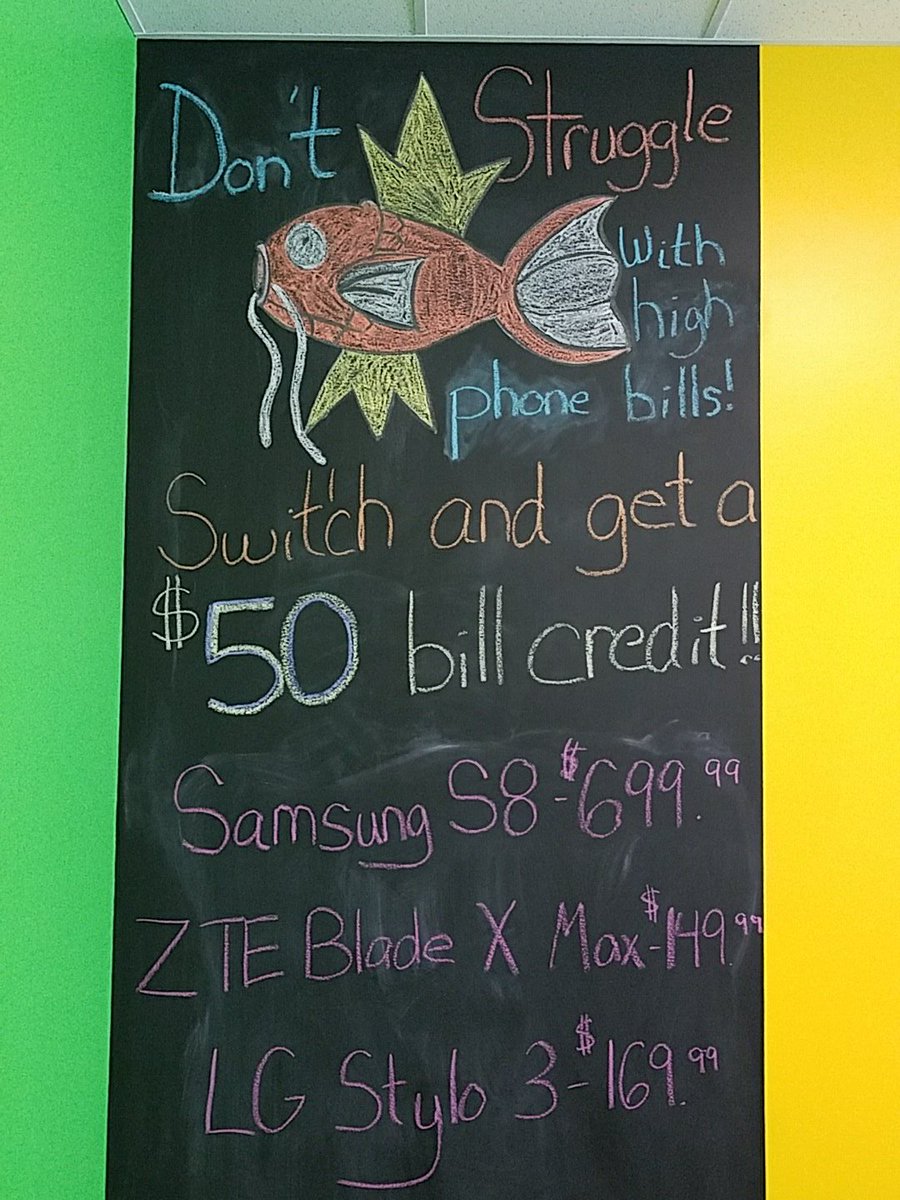 Don't Struggle
with
high
phone bills!
Switch and get a
$50 bill credit!!
Samsung S8-$699.99
ZTE Blade X Max-$149.99
LG Stylo 3-$169.99